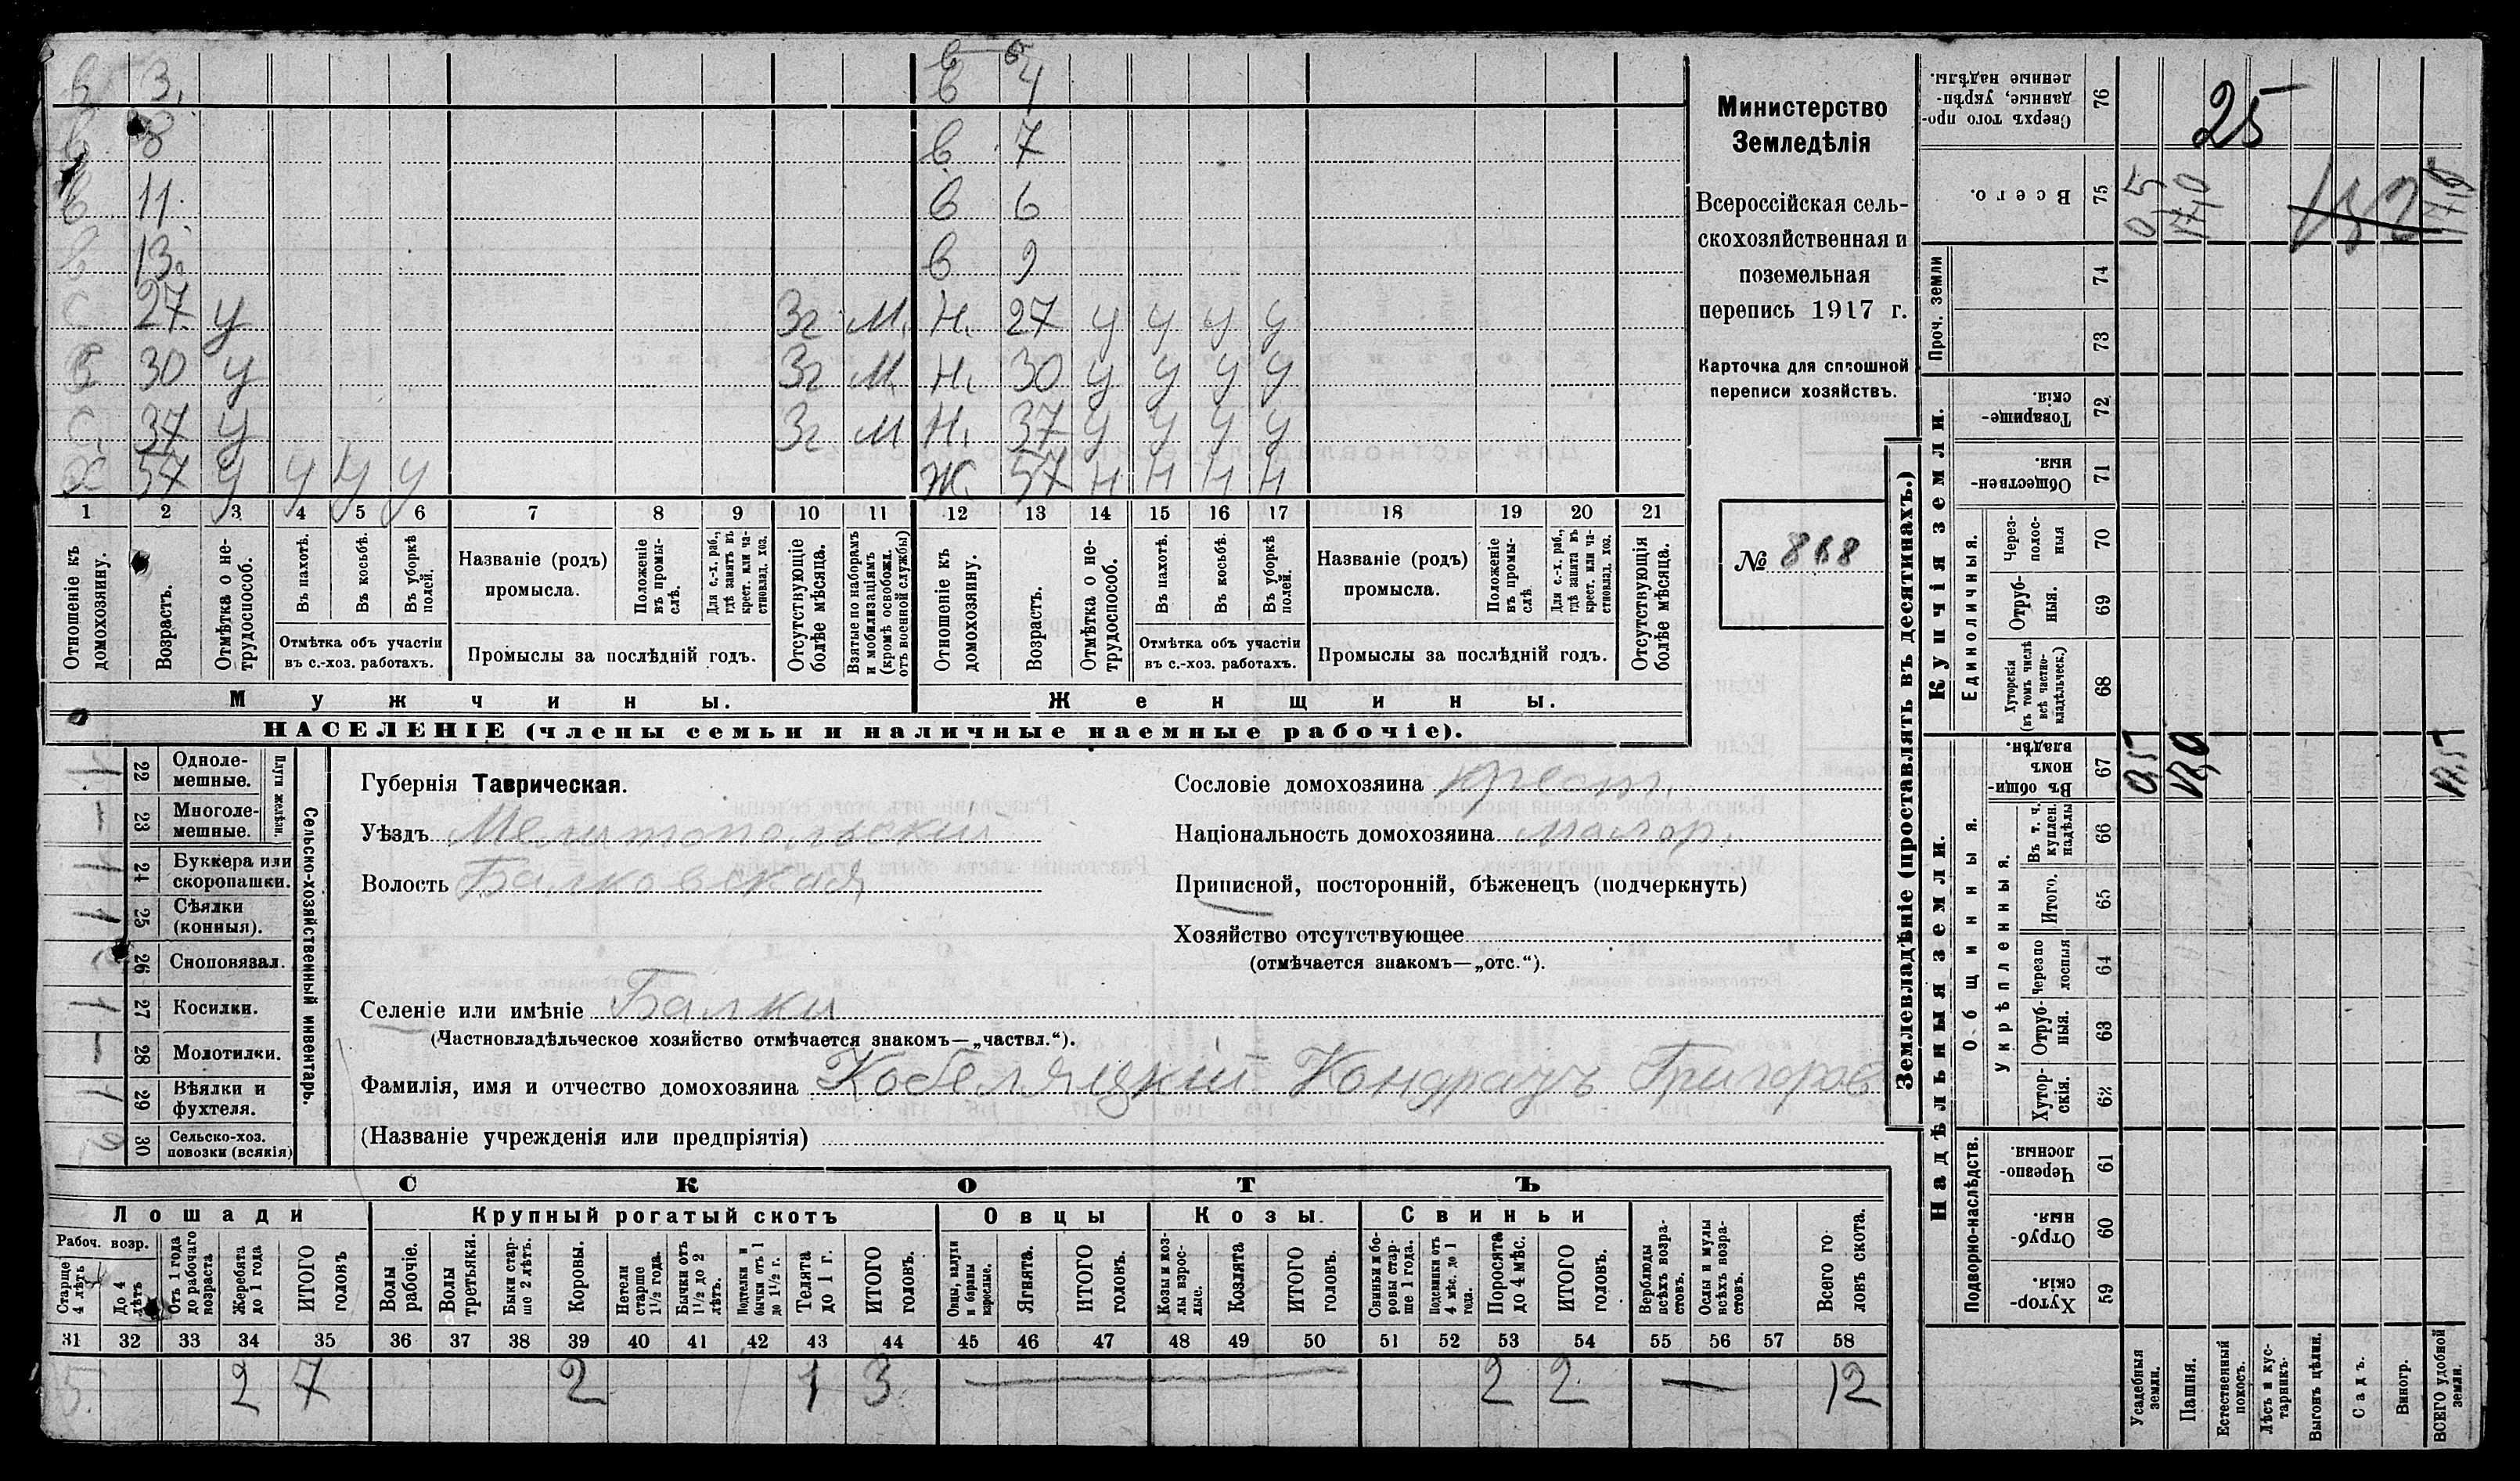 в 3, в 4
в 8 в 7
в 11 в 6
в 13 в 9
с 27 у Зг М. Н. 27 у у у у
с 30 у Зг М. Н. 30 у у у у
с. 37 у Зг М Н. 37 у у у у
х 57 у у у у Ж. 57 н н н н
1 2 3 4 5 6 7 8 9 10 11 12 13 14 15 16 17 18 19 20 21
Отношеніе къ домохозяину.
Возрастъ.
Отмѣтка о нетрудоспособ.
Въ пахотѣ.
Въ косьбѣ.
Въ уборкѣ полей.
Отмѣтка объ участіи въ с.-хоз. работахъ.
Названіе (родъ) промысла.
Положеніе въ промыслѣ.
Для с.-х. раб., гдѣ занятъ въ крест. или частновлад. хоз.
Промыслы за послѣдній годъ.
Отсутствующіе болѣе мѣсяца.
Взятые по наборамъ и мобилизаціямъ (кромѣ освобожд. отъ военной службы)
Отношеніе къ домохозяину.
Возрастъ.
Отмѣтка о нетрудоспособ.
Въ пахотѣ.
Въ косьбѣ.
Въ уборкѣ полей.
Отмѣтка объ участіи въ с.-хоз. работахъ.
Названіе (родъ) промысла.
Положеніе въ промыслѣ
Для с.-х. раб., гдѣ занята въ крест. или частновлад. хоз.
Промыслы за послѣдній годъ.
Отсутствующія болѣе мѣсяца.
Мужчины. Женщины.
НАСЕЛЕНІЕ (члены семьи и наличные наемные рабочіе).
Министерство
Земледѣлія
Всероссійская сель-
скохозяйственная и
поземельная
перепись 1917 г.
Карточка для сплошной
переписи хозяйствъ.
№ 868
Сельско-хозяйственный инвентарь.
Плуги желѣзн.
22 Однолемешные.
23 Многолемешные.
24 Буккера или скоропашки.
25 Сѣялки (конныя).
26 Сноповязал.
27 Косилки.
28 Молотилки.
29 Вѣялки и фухтеля.
30 Сельско-хоз. повозки (всякія)
Губернія Таврическая.
Уѣздъ Мелитопольскій
Волость Балковская
Селеніе или имѣніе Балки
(Частновладѣльческое хозяйство отмѣчается знакомъ—„частвл.“).
Фамилія, имя и отчество домохозяина Кобеляцкій Кондратъ Григоров
(Названіе учрежденія или предпріятія)
Сословіе домохозяина крест.
Національность домохозяина малор.
Приписной, посторонній, бѣженецъ (подчеркнуть)
Хозяйство отсутствующее
(отмѣчается знакомъ—„отс.“).
СКОТЪ
Лошади Крупный рогатый скотъ Овцы Козы. Свиньи
Рабоч. возр.
Старше 4 лѣтъ
До 4 лѣтъ
Отъ 1 года до рабочаго возраста
Жеребята до 1 года
ИТОГО головъ
Волы рабочіе.
Волы третьяки.
Быки старше 2 лѣтъ.
Коровы.
Нетели старше 1½ года.
Бычки отъ 1½ до 2 лѣтъ.
Подтелки и бычки отъ 1 до 1½ г.
Телята до 1 г.
ИТОГО головъ.
Овцы, валухи и бараны взрослые.
Ягнята.
ИТОГО головъ.
Козы и козлы взрослые.
Козлята
ИТОГО головъ.
Свиньи и боровы старше 1 года.
Подсвинки отъ 4 мѣс. до 1 года.
Поросята до 4 мѣс.
ИТОГО головъ.
Верблюды всѣхъ возрастовъ.
Ослы и мулы всѣхъ возрастовъ.
Всего головъ скота.
31 32 33 34 35 36 37 38 39 40 41 42 43 44 45 46 47 48 49 50 51 52 53 54 55 56 57 58
5 2 7 2 1 3 — 2 2 — 12
Землевладѣніе (проставлять въ десятинахъ.)
Сверхъ того проданные, укрѣпленные надѣлы. 76 25
Всего. 75 0,5 17,0 17,5
Проч. земли 74 73
Купчія земли.
Товарищескія. 72
Общественныя. 71
Единоличныя.
Черезполосныя 70
Отрубныя. 69
Хуторскія (въ томъ числѣ всѣ частновладѣльческ.) 68
Надѣльныя земли.
Общинныя.
Въ общинномъ владѣн. 67 0,5 17,0 17,5
Укрѣпленныя.
Въ т. ч. куплен. надѣлы 66
Итого. 65
Черезполосныя 64
Отрубныя. 63
Хуторскія. 62
Подворно-наслѣдств.
Черезполосныя. 61
Отрубныя. 60
Хуторскія. 59
Усадебныя земли.
Пашня.
Естественный покосъ.
Лѣсъ и кустарникъ.
Выгонъ цѣлин.
Садъ.
Виногр.
ВСЕГО удобной земли.